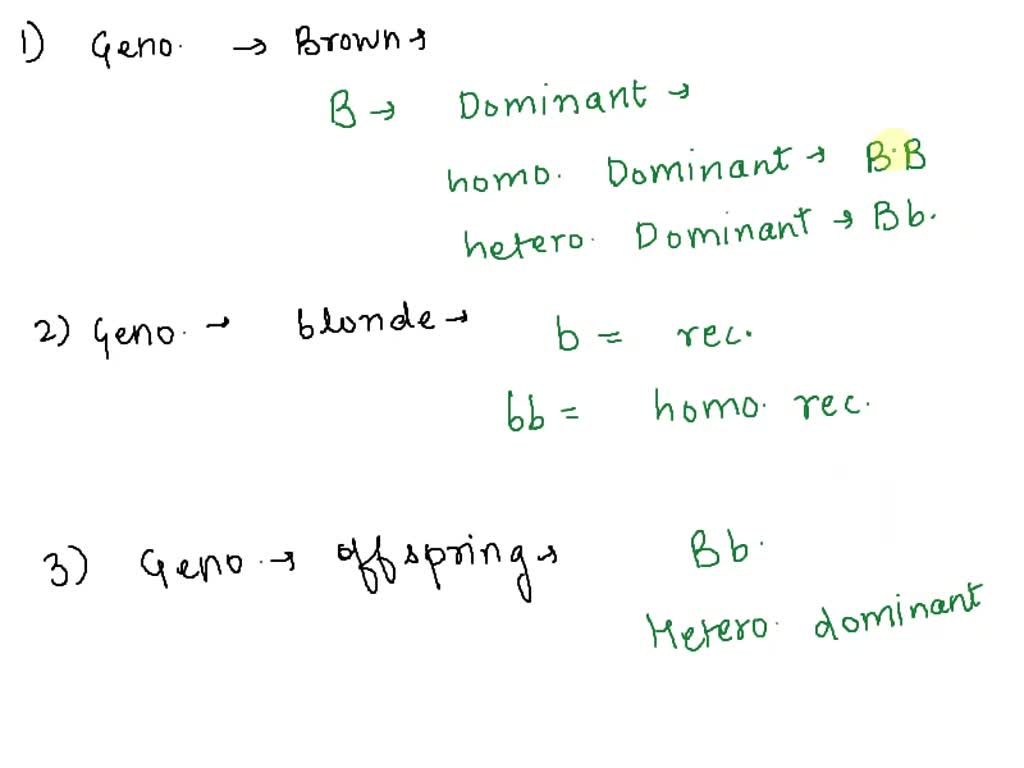 1) Geno. → Brown →
B → Dominant →
homo. Dominant → B.B
hetero. Dominant → Bb.
2) Geno. → blonde → b = rec.
bb = homo. rec.
3) Geno. → offspring → Bb.
Hetero. dominant